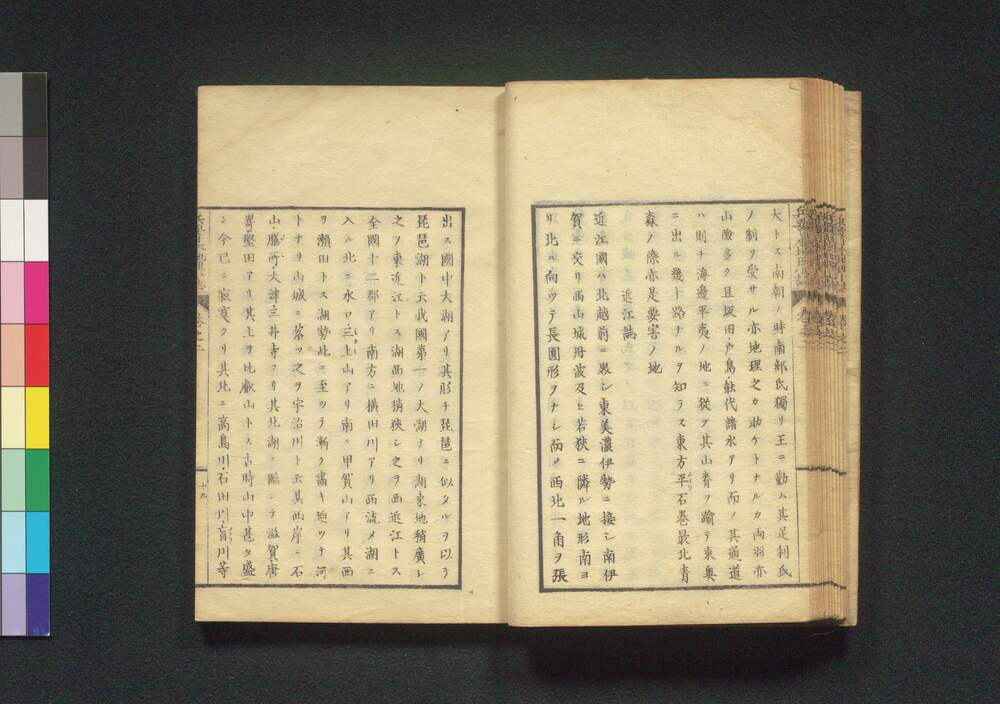 大トス南朝ノ時南部氏獨リ王ニ勤ム其足利氏
ノ制ヲ受サル亦地理之カ助ケトナルカ両羽亦
山險多ク且坂田戸島能代諸水アリ而ノ其通道
ハ則チ海邊平夷ノ地ニ從フ其山脊ヲ踰テ東奥
ニ出ル幾十路ナルヲ知ラス東方平石巻最北青
森ノ際亦是要害ノ地
近江誌
近江國ハ北越前ニ界シ東美濃伊勢ニ接シ南伊
賀ニ交リ西山城丹波及ヒ若狭ニ隣ル地形南ヨ
リ北ニ向ツテ長圓形ヲナシ而メ西北一角ヲ張
出ス國中大湖アリ其形チ琵琶ニ似タルヲ以テ
琵琶湖ト云我國第一ノ大湖ナリ湖東地稍廣シ
之ヲ東近江トス湖西地稍狹シ之ヲ西近江トス
全國十二郡アリ南方ニ横田川アリ西流メ湖ニ
入ル北ニ水口三上山アリ南ニ甲賀山アリ其西
ヲ瀬田トス湖勢此ニ至ツテ漸ク潚キ迫ツテ河
トナリ山城ニ落ツ之ヲ宇治川ト云其西岸ニ石
山膳所大津三井寺アリ其北湖ニ臨ンテ滋賀唐
崎堅田アリ其上ヲ比叡山トス古時山中甚タ盛
ン今已ニ寂寞タリ其北ニ高島川石田川
川等
巻之二
十九